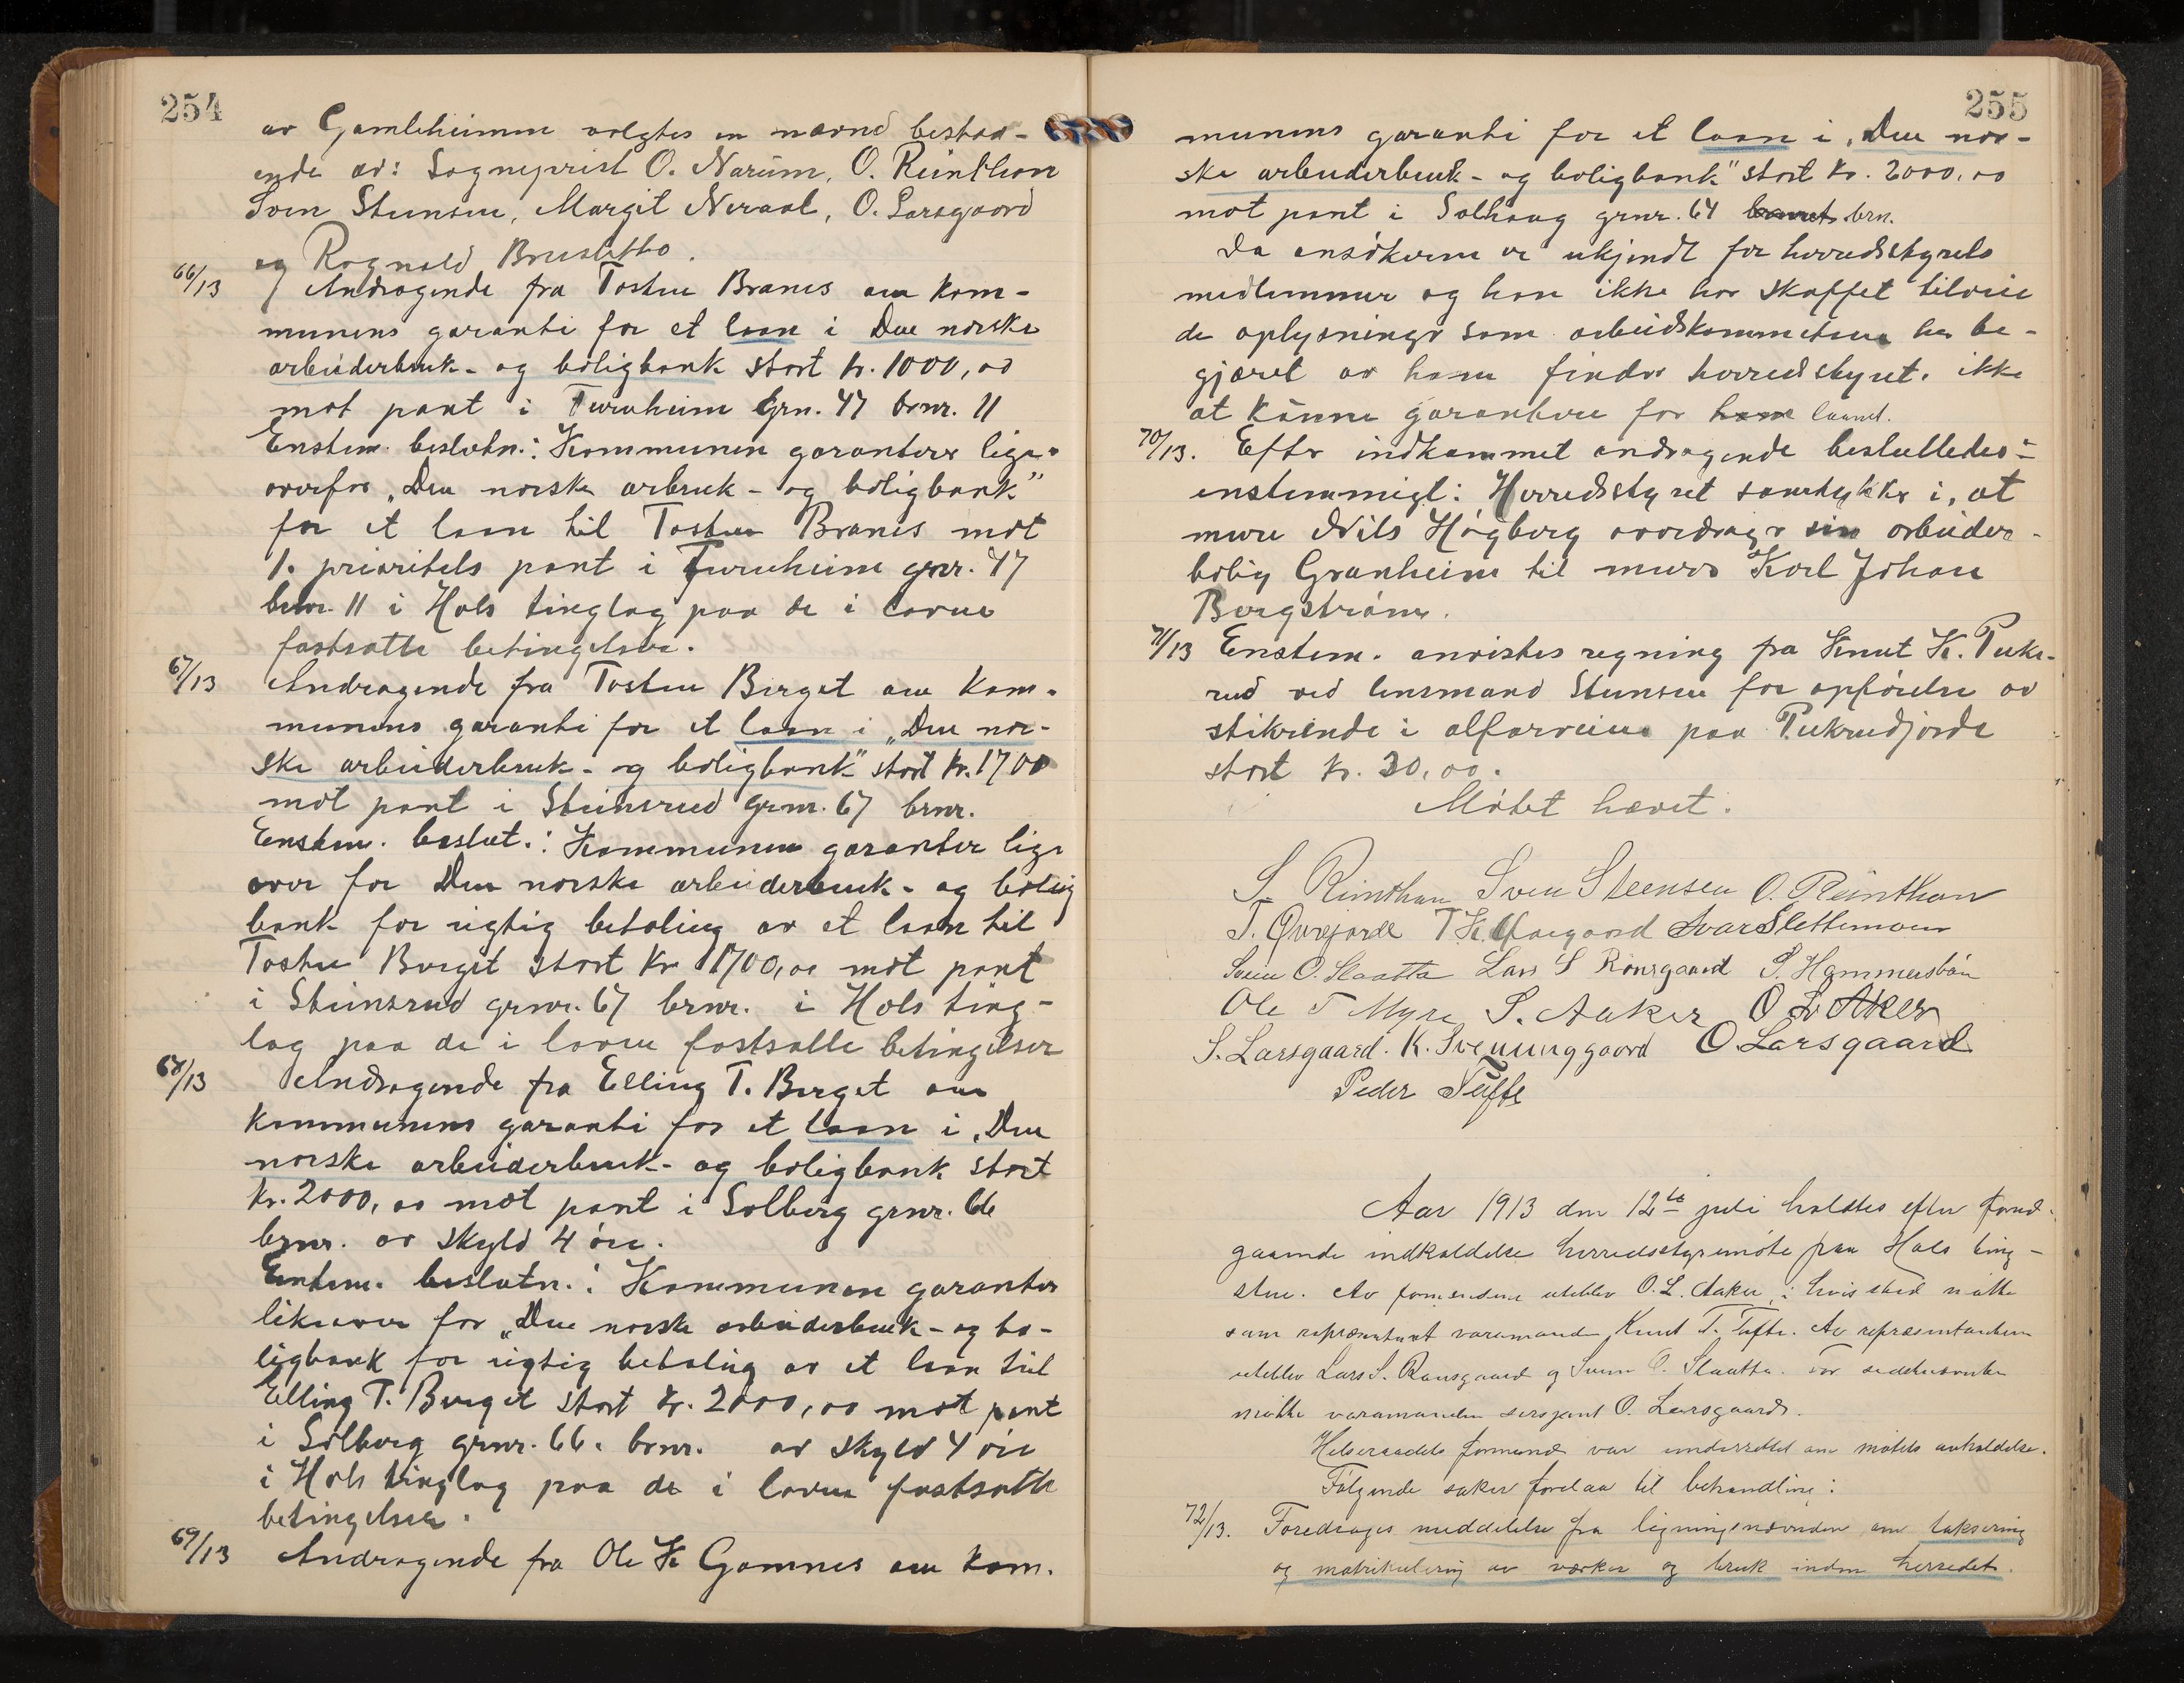 254
av Gamleheimen valgtes en nævnd bestaa-
ende av: Sogneprest O. Narum, O. Reinthon
Sven Steensen, Margit Neraal, O. Larsgaard
og Ragnald Bruslette.
66/13 Andragende fra Tosten Branes om kom-
munens garanti for et laan i Den norske
arbeiderbruk- og boligbank stort kr. 1000,00
mot pant i Furuheim Grn. 47 brnr. 11
Enstem. beslutn.: Kommunen garanterer lige-
overfor „Den norske arbruk- og boligbank"
for et laan til Tosten Branes mot
1. prioritets pant i Furuheim grnr. 47
brnr. 11 i Hols tinglag paa de i loven
fastsatte betingelser.
67/13 Andragende fra Tosten Berget om kom-
munens garanti for et laan i „Den nor-
ske arbeiderbruk- og boligbank" stort kr. 1700
mot pant i Steinsrud grnr. 67 brnr.
Enstem. beslut.: Kommunen garanter lige
over for Den norske arbeiderbruk- og bolig
bank for rigtig betaling av et laan til
Tosten Berget stort kr 1700,00 mot pant
i Steinsrud grnr. 67 brnr. i Hols ting-
lag paa de i loven fastsatte betingelser
68/13 Andragende fra Elling T. Berget om
kommunens garanti for et laan i „Den
norske arbeiderbruk- og boligbank stort
kr. 2000,00 mot pant i Solberg grnr. 66
brnr. av skyld 4 øre.
Enstem. beslutn.: Kommunen garanter
likeover for „Den norske arbeiderbruk- og bo-
ligbank for rigtig betaling av et laan til
Elling T. Berget stort kr. 2000,00 mot pant
i Solberg grnr. 66. brnr. av skyld 4 øre
i Hols tinglag paa de i loven fastsatte
betingelser.
69/13 Andragende fra Ole K Gamnes om kom-
255
munens garanti for et laan i „Den nor-
ske arbeiderbruk- og boligbank" stort kr. 2000,00
mot pant i Solhaug grnr. 64 brn.
Da ansökeren er ukjendt for herredsstyrets
medlemmer og han ikke har skaffet tilveie
de oplysninger som arbeidskommiteen har be-
gjæret av ham finder herredsstyret. ikke
at kunne garantere for ham laanet.
70/13. Efter indkommet andragende besluttedes
enstemmigt: Herredsstyret samtykker i, at
murer Nils Högberg overdrager sin arbeider-
bolig Granheim til murer Karl Johan
Bergström.
71/13 Enstem. anvistes regning fra Knut K. Puke-
rud ved lensmand Steensen for opförelse av
stikrende i alfarveien paa Pukerudjorde
stort kr. 30,00.
Mötet hævet.
S Reinthon Sven Steensen O. Reinthon
T. Qvisjorde T K Aargaard Ivar Slettemoen
Svein O. Slaatta Lars S Rønsgaard S. Hammersbøn
Ole T Myre S. Aaker O L Aker
S. Larsgaard. K. Sveinunggaard O. Larsgaard
Peder Tufte
Aar 1913 den 12te juli holdtes efter forud-
gaaende indkaldelse herredsstyremöte paa Hols ting-
stue. Av formændene uteblev O. L. Aaker, i hvis sted mötte
som repræsentant varamanden Knut T. Tufte. Av repræsentanterne
uteblev Lars S. Rønsgaard og Svein O. Slaatta. For sidstnævnte
mötte varamanden sersjant O. Larsgaard.
Helseraadets formand var underrettet om mötets avholdelse.
Fölgende saker forelaa til behandling:
72/13. Foredroges meddelelse fra ligningsnævnden om taksering
og matrikulering av verker og bruk inden herredet.